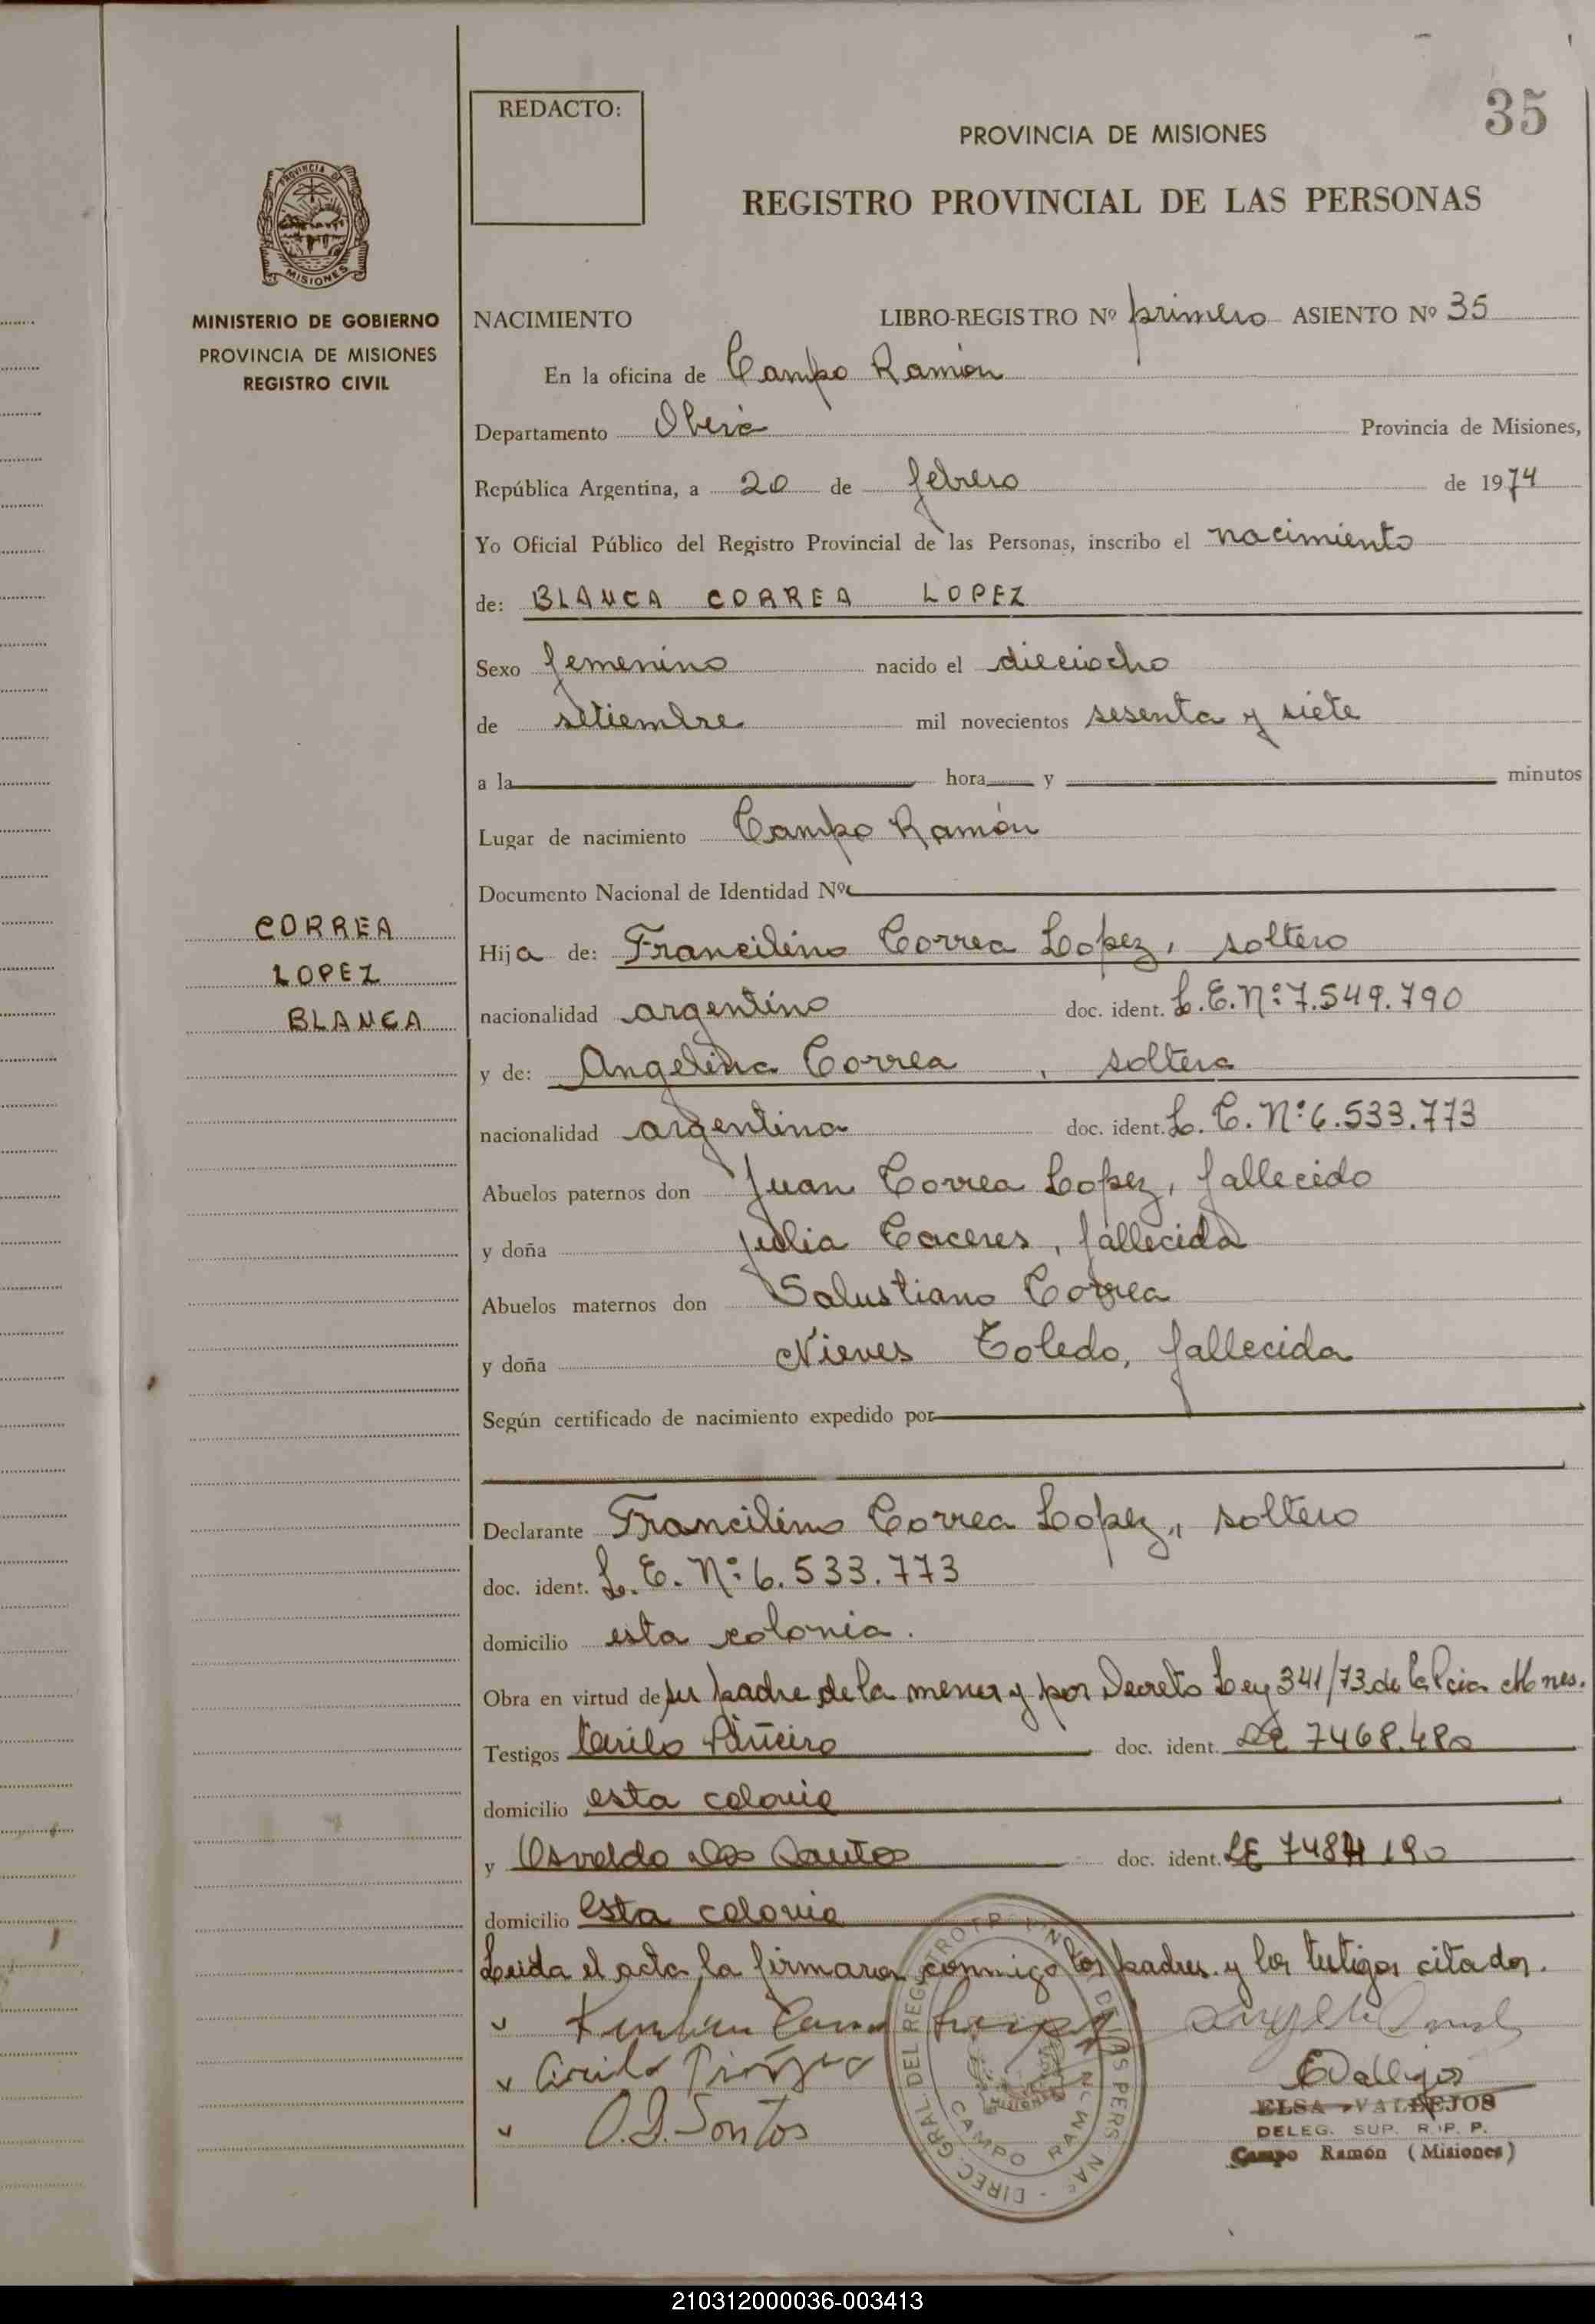 35
REDACTO:
PROVINCIA DE MISIONES
REGISTRO PROVINCIAL DE LAS PERSONAS
PROVINCIA DE
MISIONES
MINISTERIO DE GOBIERNO
PROVINCIA DE MISIONES
REGISTRO CIVIL
NACIMIENTO LIBRO-REGISTRO Nº primero ASIENTO Nº 35
En la oficina de Campo Ramón
Departamento Oberá Provincia de Misiones,
República Argentina, a 20 de febrero de 1974
Yo Oficial Público del Registro Provincial de las Personas, inscribo el nacimiento
de: BLANCA CORREA LOPEZ
Sexo femenino nacido el dieciocho
de setiembre mil novecientos sesenta y siete
a la hora y minutos
Lugar de nacimiento Campo Ramón
Documento Nacional de Identidad Nº
CORREA
LOPEZ
BLANCA
Hija de: Francilino Correa Lopez, soltero
nacionalidad argentino doc. ident. L.E. Nº: 7.549.790
y de: Angelina Correa, soltera
nacionalidad argentina doc. ident. L. C. Nº: 6.533.773
Abuelos paternos don Juan Correa Lopez, fallecido
y doña Julia Caceres, fallecida
Abuelos maternos don Salustiano Correa
y doña Nieves Toledo, fallecida
Según certificado de nacimiento expedido por
Declarante Francilino Correa Lopez, soltero
doc. ident. L. E. Nº: 6.533.773
domicilio esta colonia.
Obra en virtud de ser padre de la menor y por Decreto Ley 341/73 de la Pcia Mnes.
Testigos Cirilo Piñeiro doc. ident. LE 7468.480
domicilio esta colonia
y Osvaldo Dos Santos doc. ident. LE 190
domicilio esta colonia
Leida el acta, la firmaron conmigo los padres y los testigos citados.
O.D. Santos
EVallejos
ELSA VALLEJOS
DELEG. SUP. R. P. P.
Campo Ramón (Misiones)
DIREC. GRAL. DEL REGISTRO PERS.
CAMPO RAMON
MISIONES
210312000036-003413